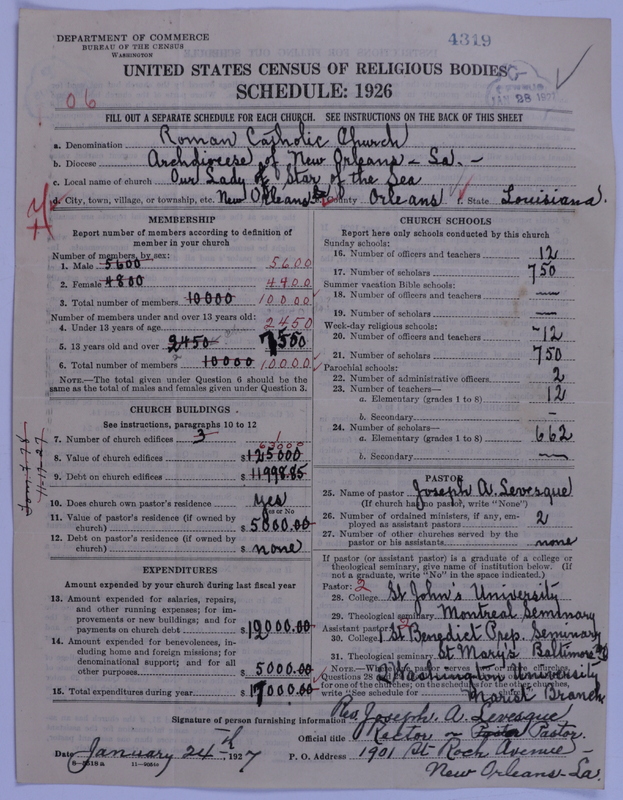 DEPARTMENT OF COMMERCE
BUREAU OF THE CENSUS
WASHINGTON
4319
UNITED STATES CENSUS OF RELIGIOUS BODIES
SCHEDULE: 1926
JAN 28 1927
06
FILL OUT A SEPARATE SCHEDULE FOR EACH CHURCH. SEE INSTRUCTIONS ON THE BACK OF THIS SHEET
a. Denomination Roman Catholic Church
b. Diocese Archdiocese of New Orleans - La. -
c. Local name of church Our Lady of Star of the Sea
d. City, town, village, or township, etc. New Orleans e. County Orleans f. State Louisiana.
MEMBERSHIP
Report number of members according to definition of
member in your church
Number of members, by sex:
1. Male 5600 5600
2. Female 4800 4400
3. Total number of members 10000 10000
Number of members under and over 13 years old:
4. Under 13 years of age 2450
5. 13 years old and over 2450 7550
6. Total number of members 10000 10000
NOTE.—The total given under Question 6 should be the
same as the total of males and females given under Question 3.
CHURCH BUILDINGS
See instructions, paragraphs 10 to 12
7. Number of church edifices 3 1
8. Value of church edifices $125000
9. Debt on church edifices $11998.85
10. Does church own pastor's residence yes
Yes or No
11. Value of pastor's residence (if owned by
church) $5800.00
12. Debt on pastor's residence (if owned by
church) $ none
EXPENDITURES
Amount expended by your church during last fiscal year
13. Amount expended for salaries, repairs,
and other running expenses; for im-
provements or new buildings; and for
payments on church debt $12000.00
14. Amount expended for benevolences, in-
cluding home and foreign missions; for
denominational support; and for all
other purposes $5000.00
15. Total expenditures during year $17000.00
CHURCH SCHOOLS
Report here only schools conducted by this church
Sunday schools:
16. Number of officers and teachers 12
17. Number of scholars 750
Summer vacation Bible schools:
18. Number of officers and teachers —
19. Number of scholars —
Week-day religious schools:
20. Number of officers and teachers 12
21. Number of scholars 750
Parochial schools:
22. Number of administrative officers 2
23. Number of teachers—
a. Elementary (grades 1 to 8) 12
b. Secondary –
24. Number of scholars—
a. Elementary (grades 1 to 8) 662
b. Secondary —
PASTOR
25. Name of pastor Joseph A. Levesque
(If church has no pastor, write "None")
26. Number of ordained ministers, if any, em-
ployed as assistant pastors 2
27. Number of other churches served by the
pastor or his assistants none
If pastor (or assistant pastor) is a graduate of a college or
theological seminary, give name of institution below. (If
not a graduate, write "No" in the space indicated.)
Pastor: 2
28. College St John's University
29. Theological seminary Montreal Seminary
Assistant pastor:
30. College 1 St Benedict Prep. Seminary
31. Theological seminary St Mary's Baltimore
2 Washington University
Marist Branch
Signature of person furnishing information Rev. Joseph. A. Levesque
Official title Rector or Pastor Pastor.
Date January 24th, 1927 P. O. Address 1901 St Roch Avenue -
8-5518 a New Orleans - La.